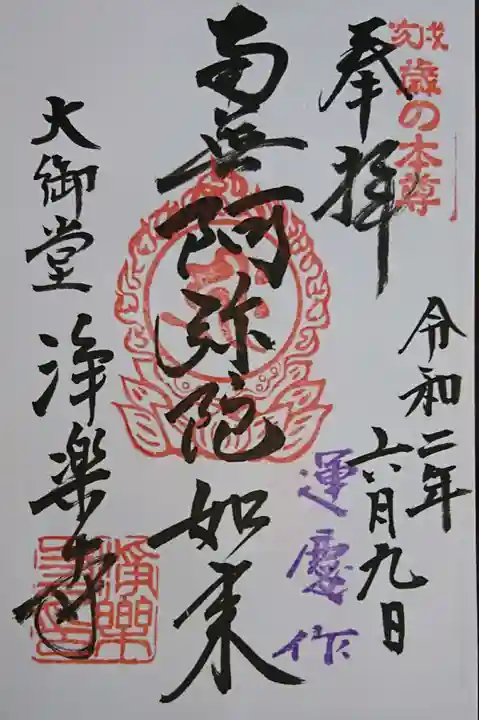 歳の本尊
奉拝
令和二年
六月九日
南無阿弥陀如来
運慶作
大御堂
浄楽寺